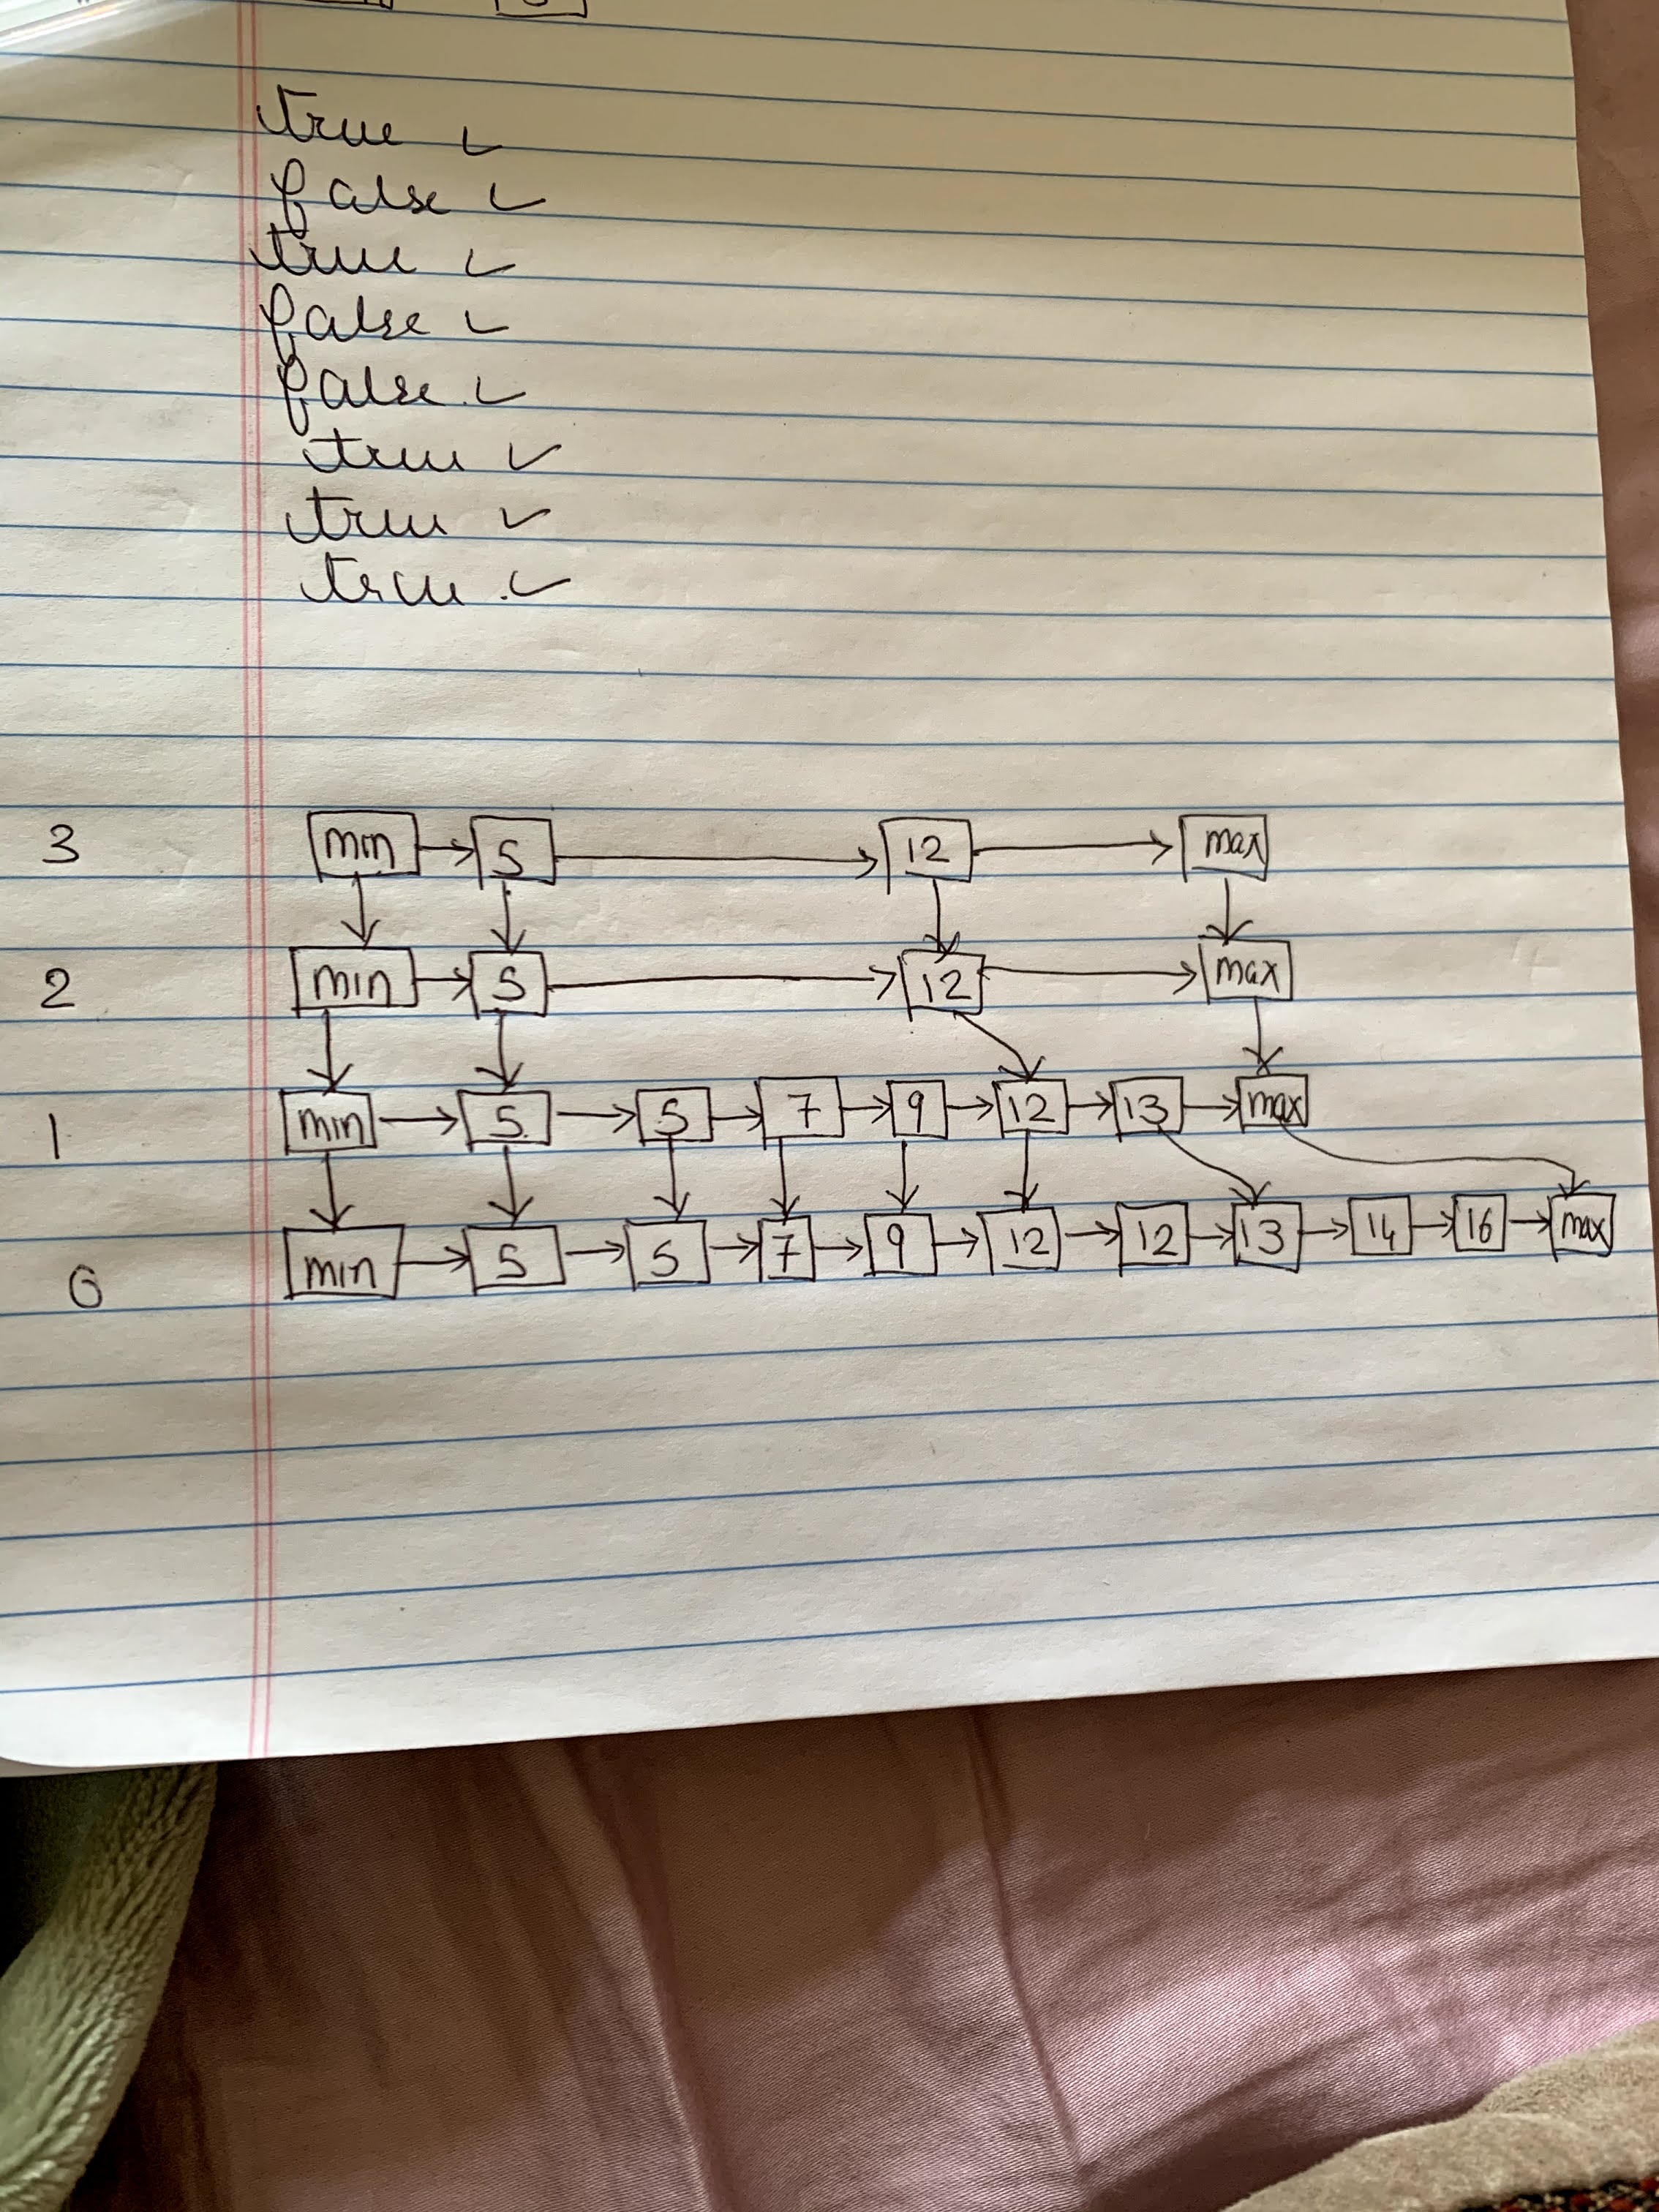 true ✓
false ✓
true ✓
false ✓
false ✓
true ✓
true ✓
true ✓
3 min → 5 → 12 → max
2 min → 5 → 12 → max
1 min → 5 → 5 → 7 → 9 → 12 → 13 → max
0 min → 5 → 5 → 7 → 9 → 12 → 12 → 13 → 14 → 16 → max